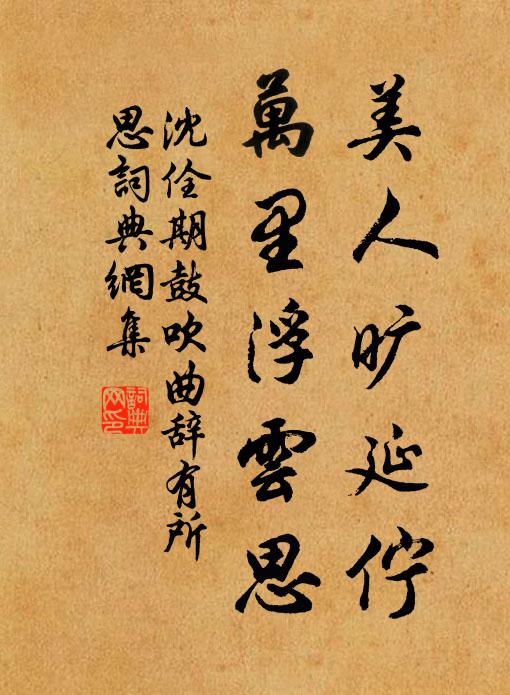 美人旷延佇
萬里浮雲思
沈佺期鼓吹曲辞有所
思詞典網集
詞典
网印